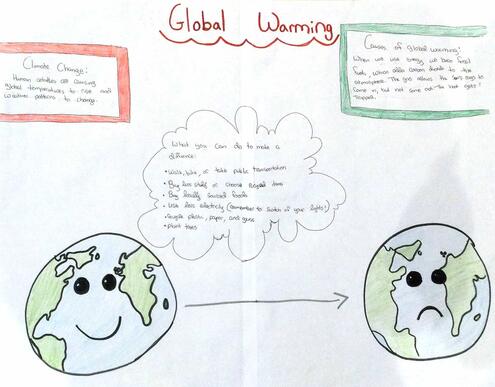 Global Warming
Climate Change:
Human activities are causing
global temperatures to rise and
weather patterns to change.
Causes of global warming:
When we use energy we burn fossil
fuels, which adds carbon dioxide to the
atmosphere. The gas allows the sun's rays to
come in, but not come out. The heat gets
trapped.
What you can do to make a
difference:
• Walk, bike, or take public transportation
• Buy less stuff or choose recycled items
• Buy locally sourced foods
• Use less electricity (remember to switch of your lights!)
• Recycle plastic, paper, and glass
• Plant trees